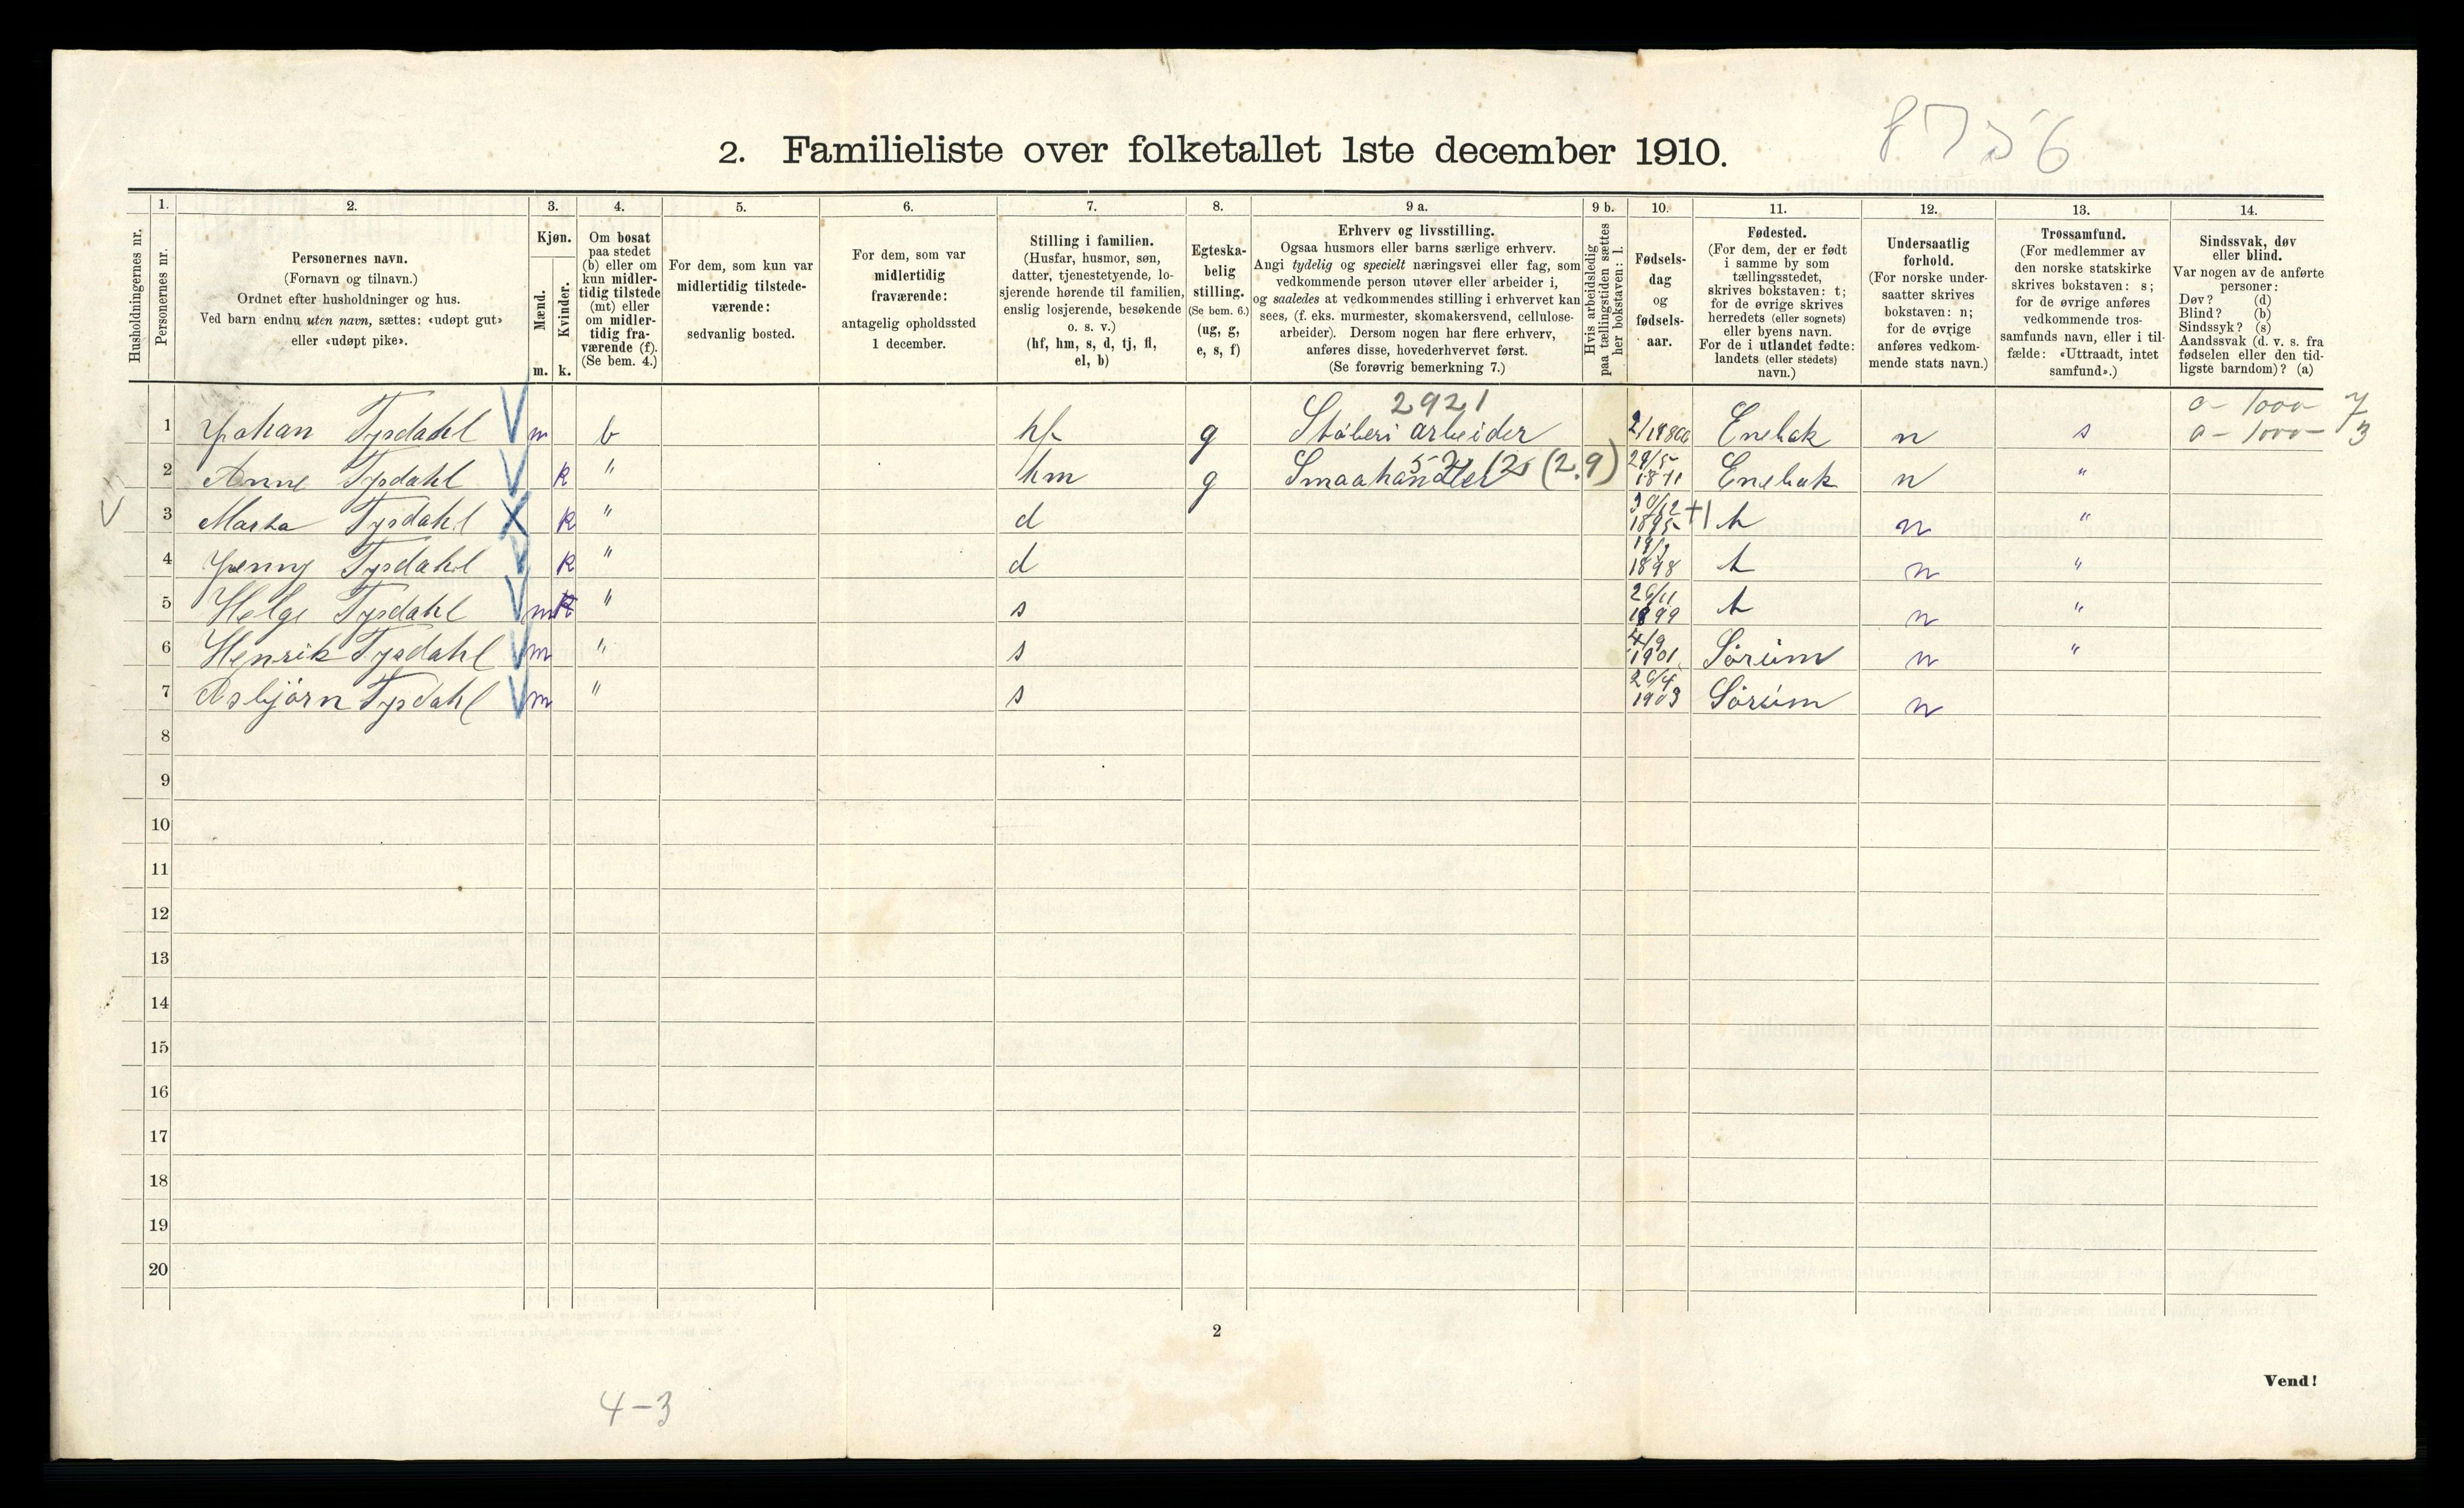 8756
2. Familieliste over folketallet 1ste december 1910.
Husholdningernes nr.
1.
Personernes nr.
2.
Personernes navn.
(Fornavn og tilnavn.)
Ordnet efter husholdninger og hus.
Ved barn endnu uten navn, sættes: «udøpt gut»
eller «udøpt pike».
3.
Kjøn.
Mænd.
Kvinder.
m. k.
4.
Om bosat
paa stedet
(b) eller om
kun midler-
tidig tilstede
(mt) eller
om midler-
tidig fra-
værende (f).
(Se bem. 4.)
5.
For dem, som kun var
midlertidig tilstede-
værende:
sedvanlig bosted.
6.
For dem, som var
midlertidig
fraværende:
antagelig opholdssted
1 december.
7.
Stilling i familien.
(Husfar, husmor, søn,
datter, tjenestetyende, lo-
sjerende hørende til familien,
enslig losjerende, besøkende
o. s. v.)
(hf, hm, s, d, tj, fl,
el, b)
8.
Egteska-
belig
stilling.
(Se bem. 6.)
(ug, g,
e, s, f)
9 a.
Erhverv og livsstilling.
Ogsaa husmors eller barns særlige erhverv.
Angi tydelig og specielt næringsvei eller fag, som
vedkommende person utøver eller arbeider i,
og saaledes at vedkommendes stilling i erhvervet kan
sees, (f. eks. murmester, skomakersvend, cellulose-
arbeider). Dersom nogen har flere erhverv,
anføres disse, hovederhvervet først.
(Se forøvrig bemerkning 7.)
9 b.
Hvis arbeidsledig
paa tællingstiden sættes
her bokstaven: l.
10.
Fødsels-
dag
og
fødsels-
aar.
11.
Fødested.
(For dem, der er født
i samme by som
tællingsstedet,
skrives bokstaven: t;
for de øvrige skrives
herredets (eller sognets)
eller byens navn.
For de i utlandet fødte:
landets (eller stedets)
navn.)
12.
Undersaatlig
forhold.
(For norske under-
saatter skrives
bokstaven: n;
for de øvrige
anføres vedkom-
mende stats navn.)
13.
Trossamfund.
(For medlemmer av
den norske statskirke
skrives bokstaven: s;
for de øvrige anføres
vedkommende tros-
samfunds navn, eller i til-
fælde: «Uttraadt, intet
samfund».)
14.
Sindssvak, døv
eller blind.
Var nogen av de anførte
personer:
Døv? (d)
Blind? (b)
Sindssyk? (s)
Aandssvak (d. v. s. fra
fødselen eller den tid-
ligste barndom)? (a)
2921 a - 1000 - 7
1 Johan Tysdahl m b hf g Støberi arbeider Enebak n s a - 1000 - 3
2 Anne Tysdahl k " hm g Smaahandler (2.9) 29/5 1871 Enebak n "
3 Marta Tysdahl k " d 30/12 1895 t n "
4 Jenny Tysdahl k " d 1898 t n "
5 Helge Tysdahl m " s 26/11 1899 t n "
6 Henrik Tysdahl m " s 4/9 1901 Sørum n "
7 Asbjørn Tysdahl m " s 26/4 1903 Sørum n
8
9
10
11
12
13
14
15
16
17
18
19
20
2
Vend!
4-3